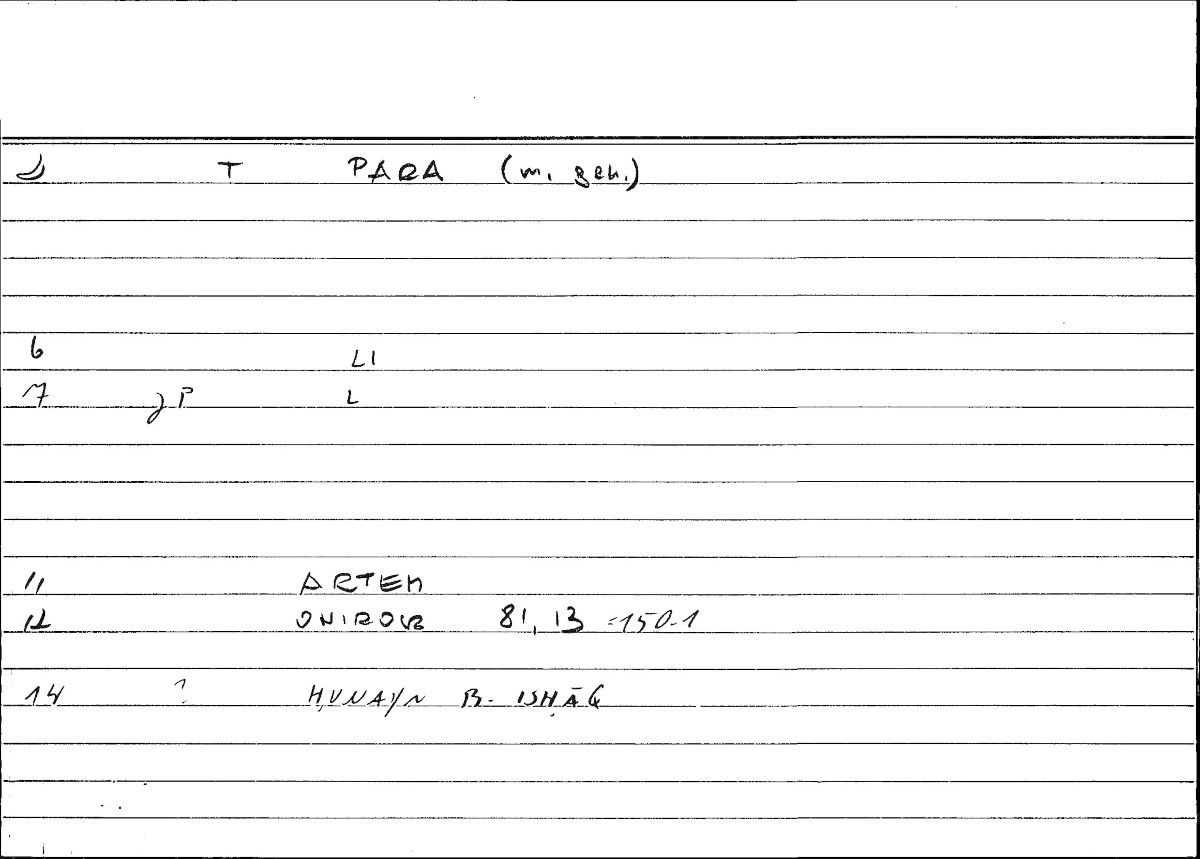 T PARA (m. gen.)
6 LI
7 P L
11 ARTEM
12 ONIROCR 81, 13 =150.1
14 ? ḤUNAYN B. ISḤĀQ